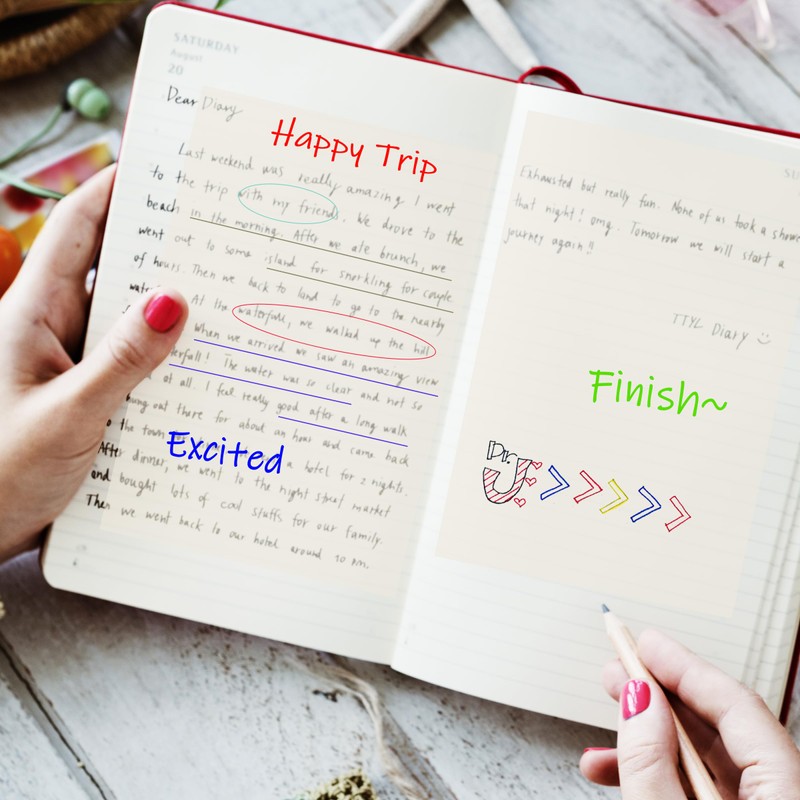 SATURDAY
August
20
Dear Diary
Happy Trip
Last weekend was really amazing I went
to the trip with my friends. We drove to the
beach in the morning. After we ate brunch, we
went out to some island for snorkling for couple
of hours. Then we back to land to go to the nearby
At the waterfall, we walked up the hill
When we arrived we saw an amazing view
The water was so clear and not so
at all. I feel really good after a long walk
out there for about an hour and came back
to the town
Excited
a hotel for 2 nights.
After dinner, we went to the night street market
and bought lots of cool stuffs for our family.
Then we went back to our hotel around 10 pm.
SU
Exhausted but really fun. None of us took a shower
that night! omg. Tomorrow we will start a
journey again!!
TTYL Diary
Finish~